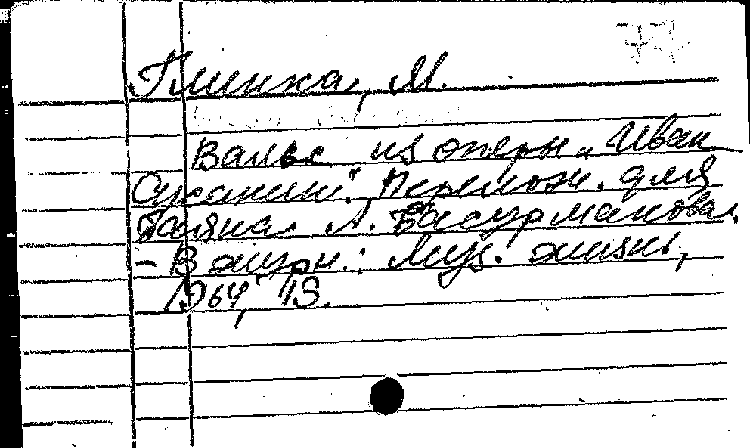 77
Глинка, М.
Вальс из оперы „Иван
Сусанин". Перелож. для
баяна А. Басурманова.
– В журн.: Муз. жизнь,
1964, 19.